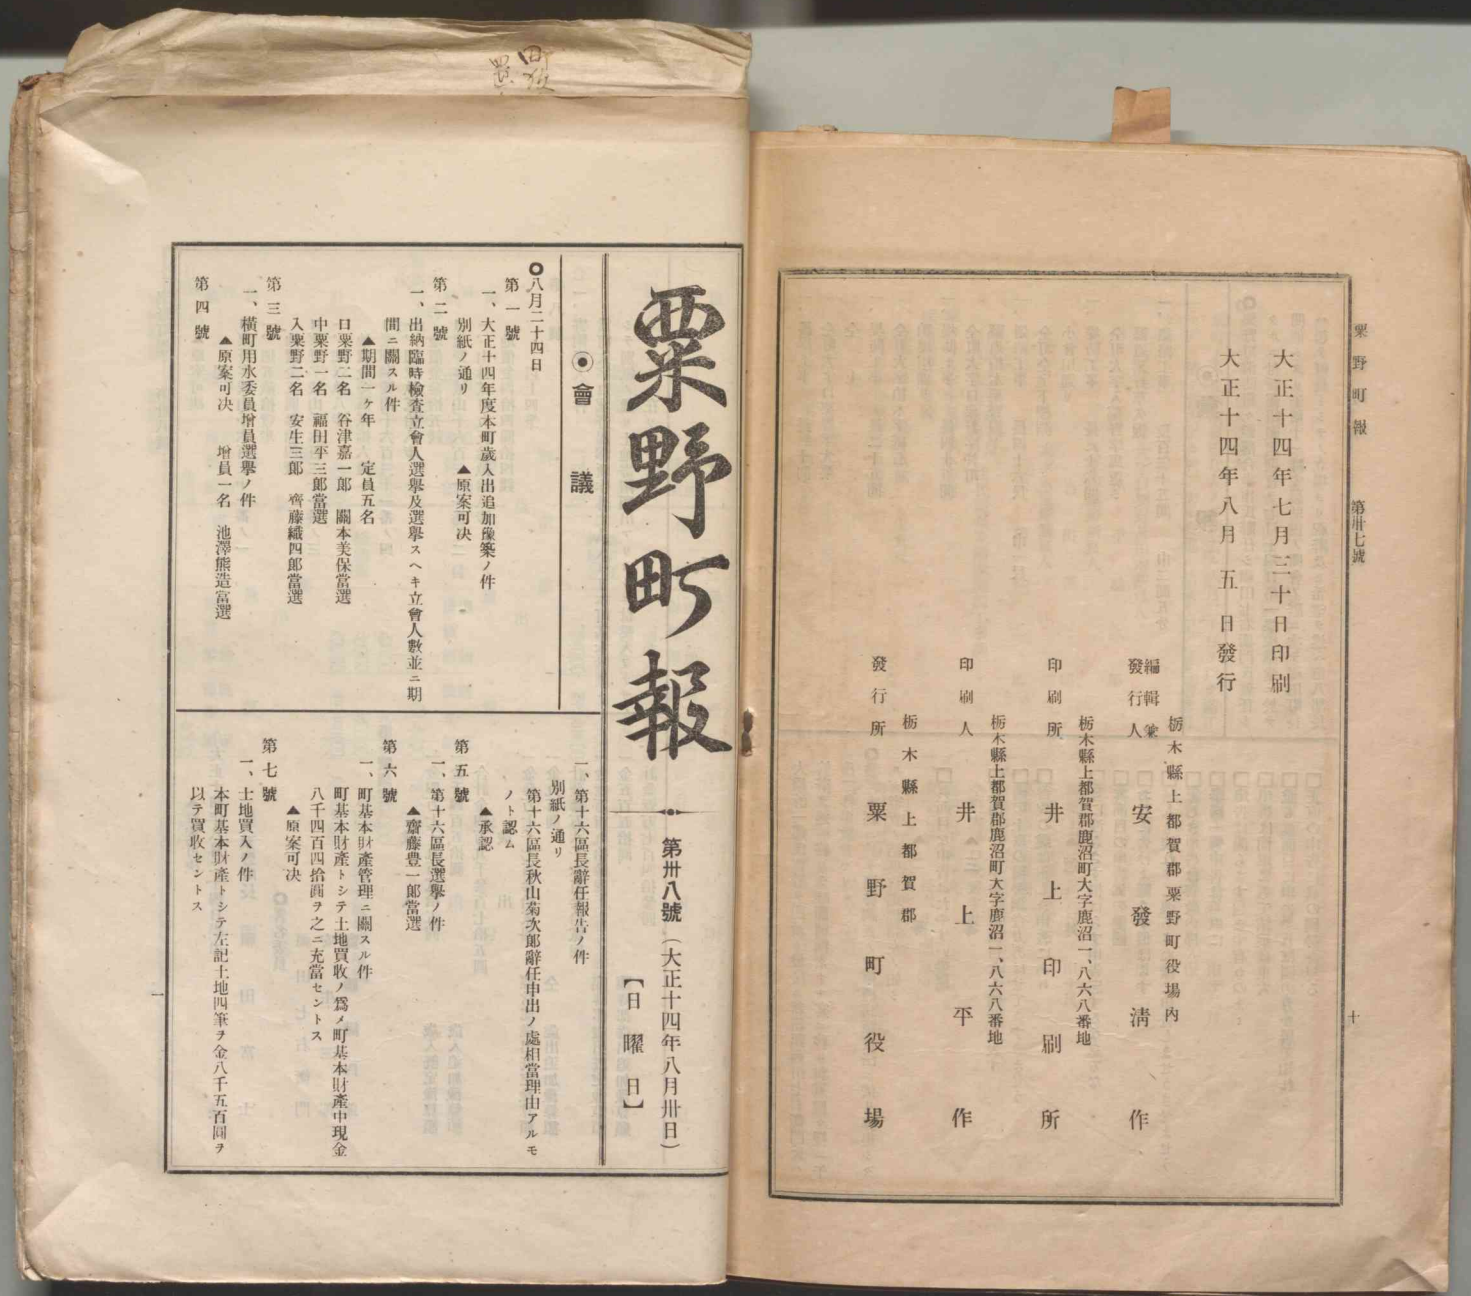 粟野町報
第卅七號
十
大正十四年七月三十日印刷
大正十四年八月五日發行
栃木縣上都賀郡粟野町役場內
編輯兼發行人 安發淸作
栃木縣上都賀郡鹿沼町大字鹿沼一、八六八番地
印刷所 井上印刷所
栃木縣上都賀郡鹿沼町大字鹿沼一、八六八番地
印刷人 井上平作
栃木縣上都賀郡
發行所 粟野町役場
粟野町報
第卅八號(大正十四年八月卅日)
【日曜日】
◉會議
○八月二十四日
第一號
一、大正十四年度本町歲入出追加豫築ノ件
別紙ノ通リ ▲原案可决
第二號
一、出納臨時檢査立會人選擧及選擧スヘキ立會人數並ニ期
間ニ關スル件
▲期間一ヶ年 定員五名
口粟野二名 谷津嘉一郞 關本美保當選
中粟野一名 福田平三郞當選
入粟野二名 安生三郞 齊藤織四郞當選
第三號
一、橫町用水委員增員選擧ノ件
▲原案可决 增員一名 池澤熊造當選
第四號
一、第十六區長辭任報告ノ件
別紙ノ通リ
第十六區長秋山菊次郞辭任申出ノ處相當理由アルモ
ノト認ム
▲承認
第五號
一、第十六區長選擧ノ件
▲齋藤豊一郞當選
第六號
一、町基本財產管理ニ關スル件
町基本財產トシテ土地買收ノ爲メ町基本財產中現金
八千四百四拾圓ヲ之ニ充當セントス
▲原案可决
第七號
一、土地買入ノ件
本町基本財產トシテ左記土地四筆ヲ金八千五百圓ヲ
以テ買收セントス
一